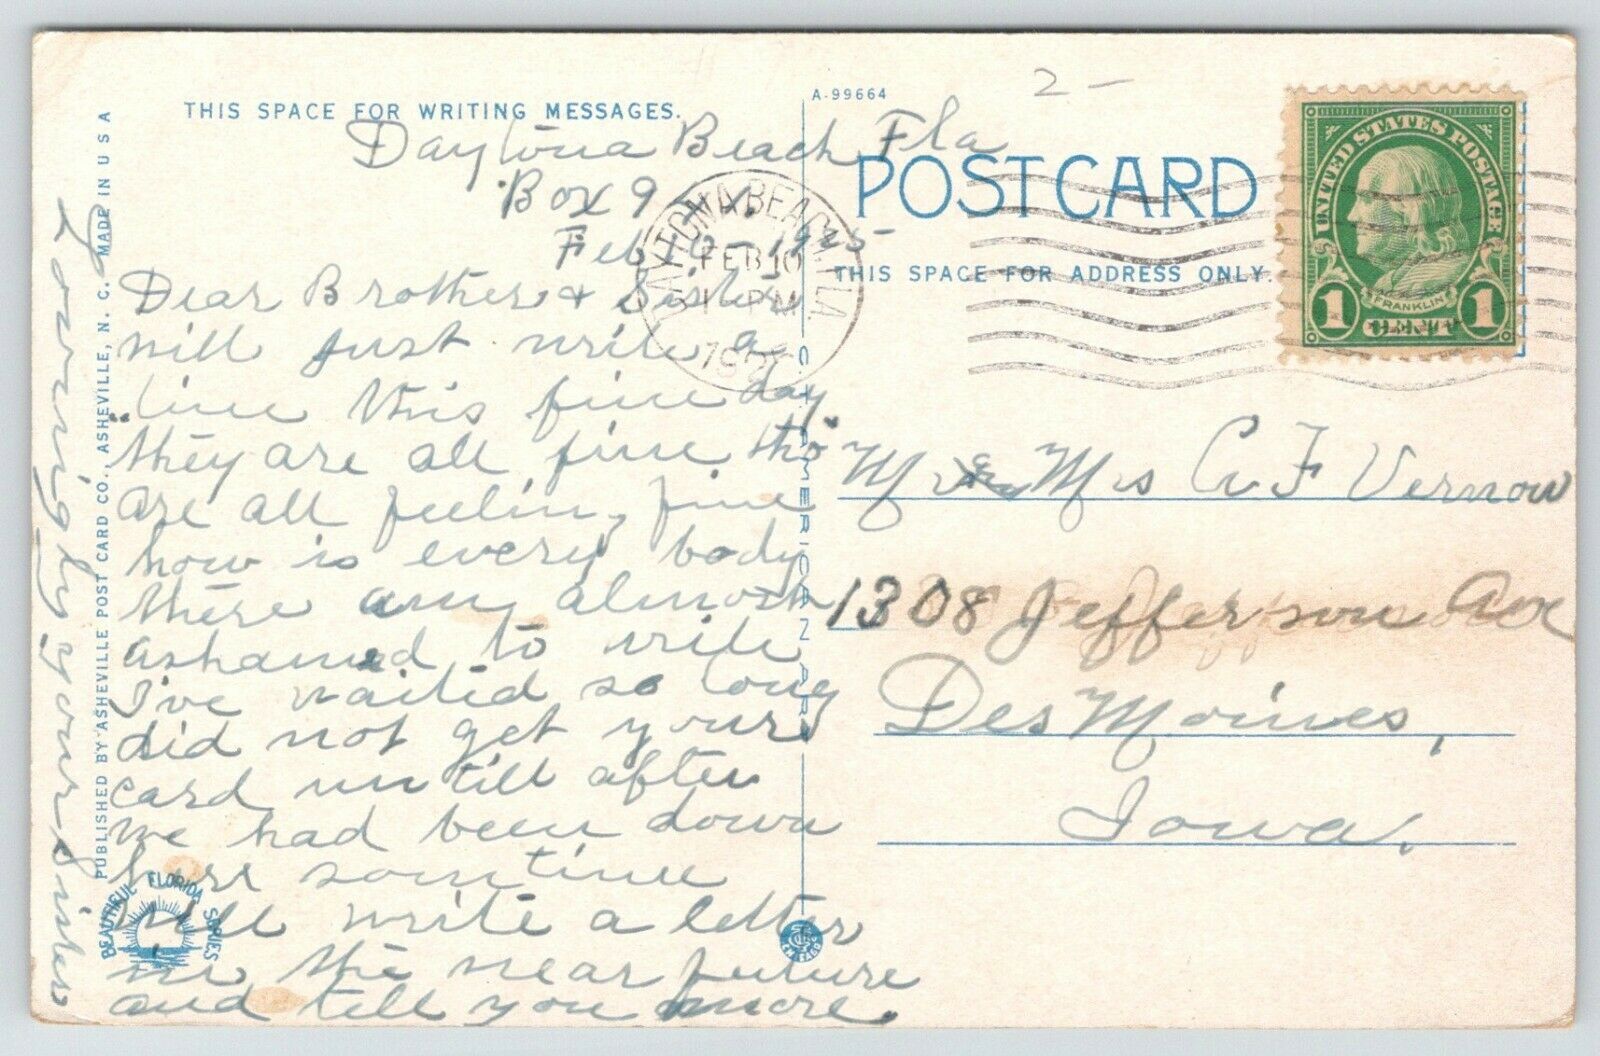 THIS SPACE FOR WRITING MESSAGES.
Daytona Beach, Fla
Box 9
Feb 1925
Dear Brother & Sister
will just write a
line this fine day
"they are all fine tho"
are all feeling fine
how is every body
there am almost
ashamed to write
I've waited so long
did not get your
card untill after
we had been down
here sometime
will write a letter
in the near future
and tell you more.
Lovingly your Sister
PUBLISHED BY ASHEVILLE POST CARD CO., ASHEVILLE, N. C. MADE IN U S A
BEAUTIFUL FLORIDA SERIES
A-99664
POST CARD
THIS SPACE FOR ADDRESS ONLY.
DAYTONA BEACH, FLA
FEB 10
PM
UNITED STATES POSTAGE
FRANKLIN
1 CENT 1
2-
C.T. AMERICAN ART
Mr & Mrs A F Vernow
1308 Jefferson Ave
Des Moines,
Iowa.